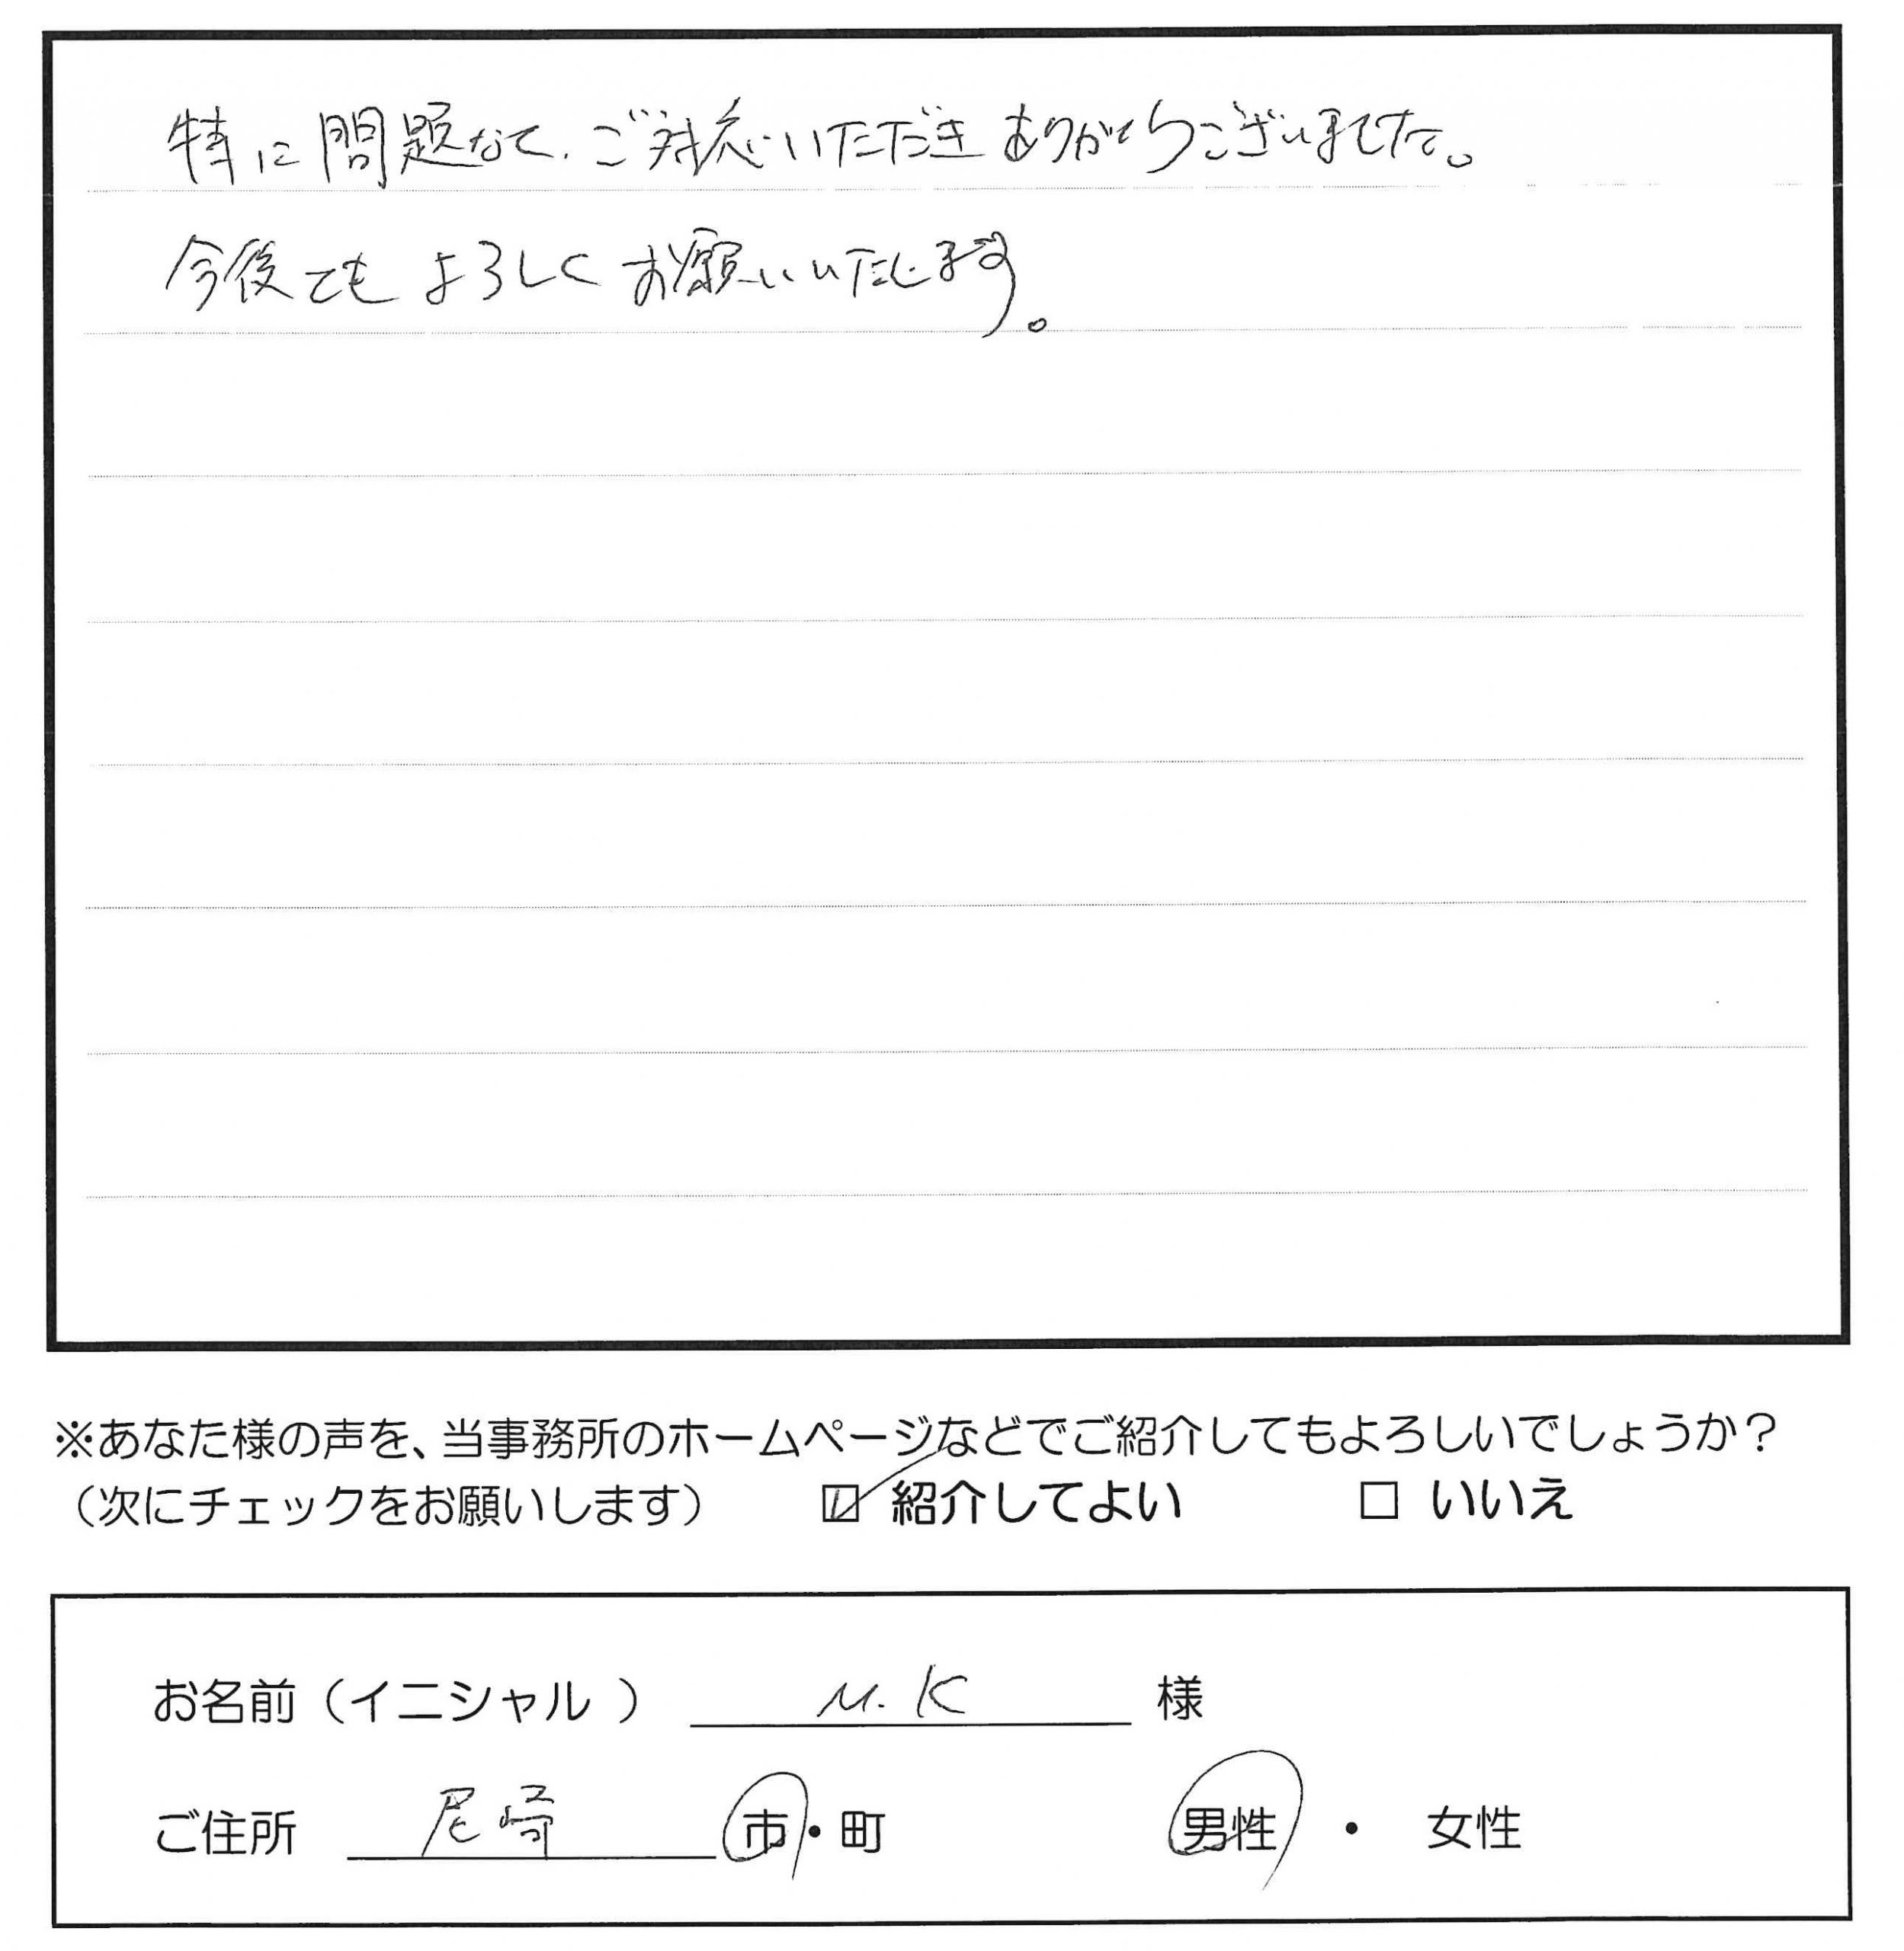 特に問題なく、ご対応いただきありがとうございました。
今後ともよろしくお願いいたします。
※あなた様の声を、当事務所のホームページなどでご紹介してもよろしいでしょうか？
（次にチェックをお願いします） ☑ 紹介してよい □ いいえ
お名前（イニシャル ） M.K 様
ご住所 尼崎 市・町 男性 ・ 女性